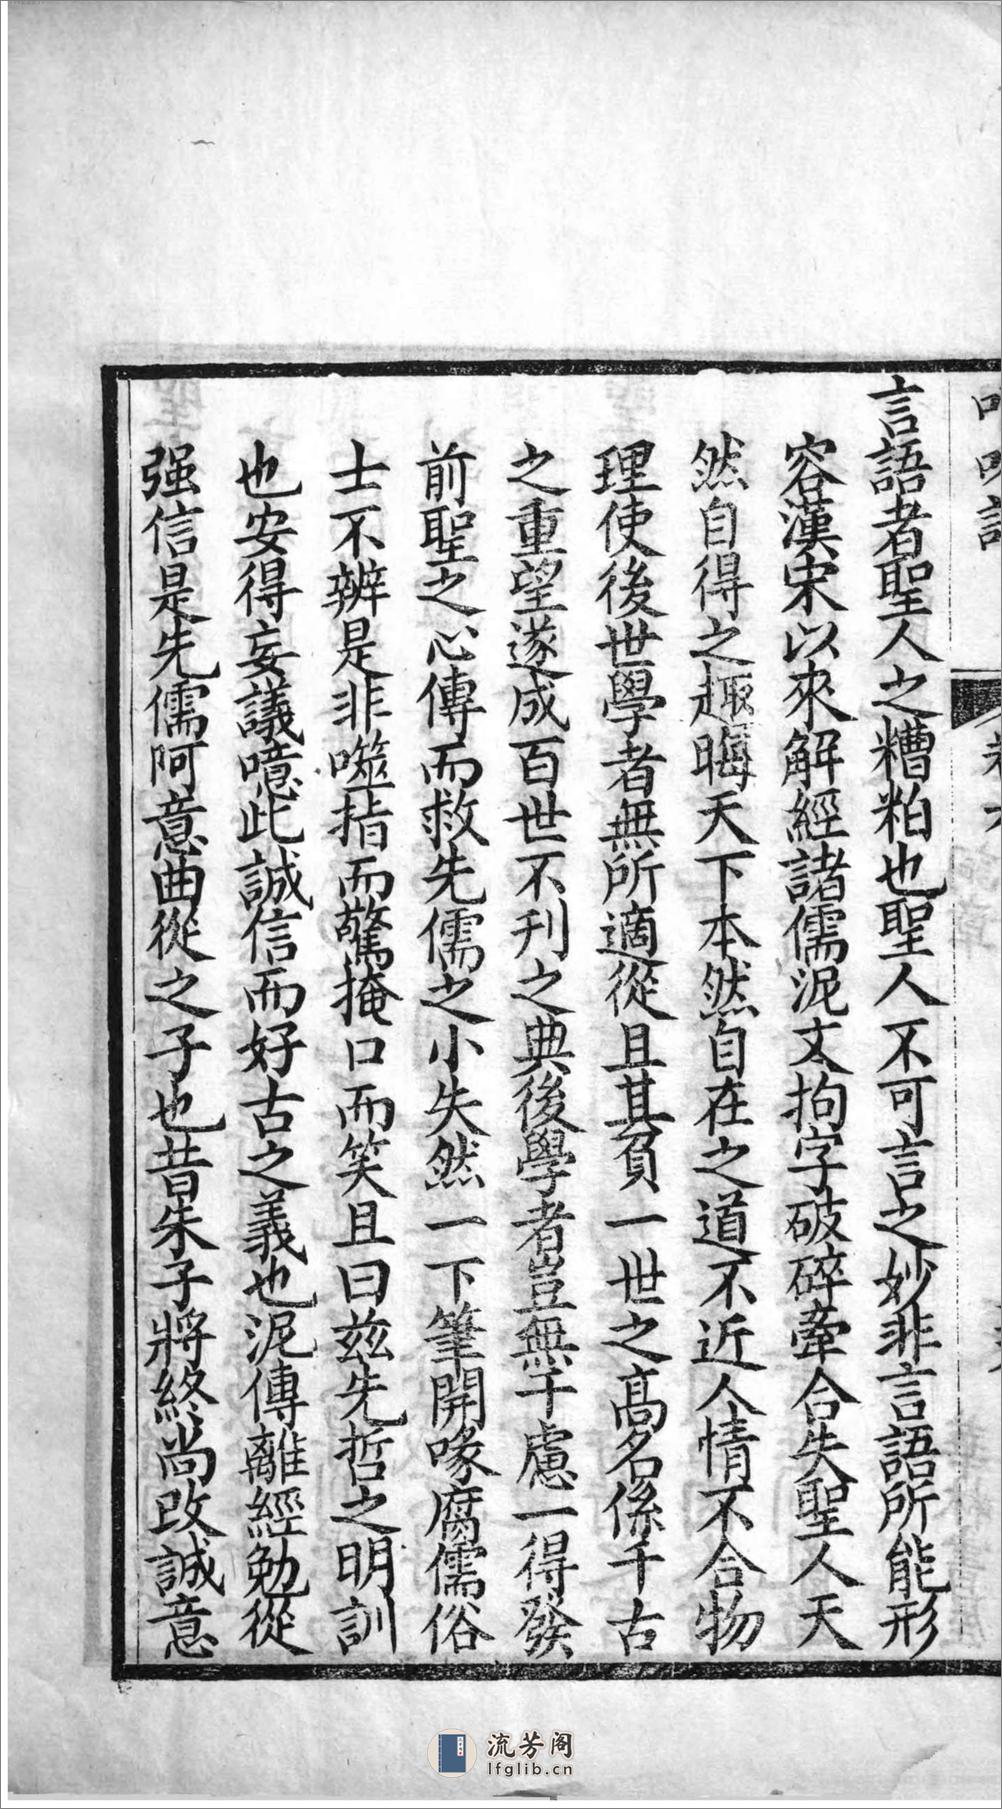 言語者聖人之糟粕也聖人不可言之妙非言語所能形
容漢宋以來解經諸儒泥文拘字破碎牽合失聖人天
然自得之趣晦天下本然自在之道不近人情不合物
理使後世學者無所適從且其負一世之高名係千古
之重望遂成百世不刊之典後學者豈無千慮一得發
前聖之心傳而救先儒之小失然一下筆開喙腐儒俗
士不辨是非噬指而驚掩口而笑且曰兹先哲之明訓
也安得妄議噫此誠信而好古之義也泥傳離經勉從
强信是先儒阿意曲從之子也昔朱子將終尚改誠意
流芳阁
lfglib.cn